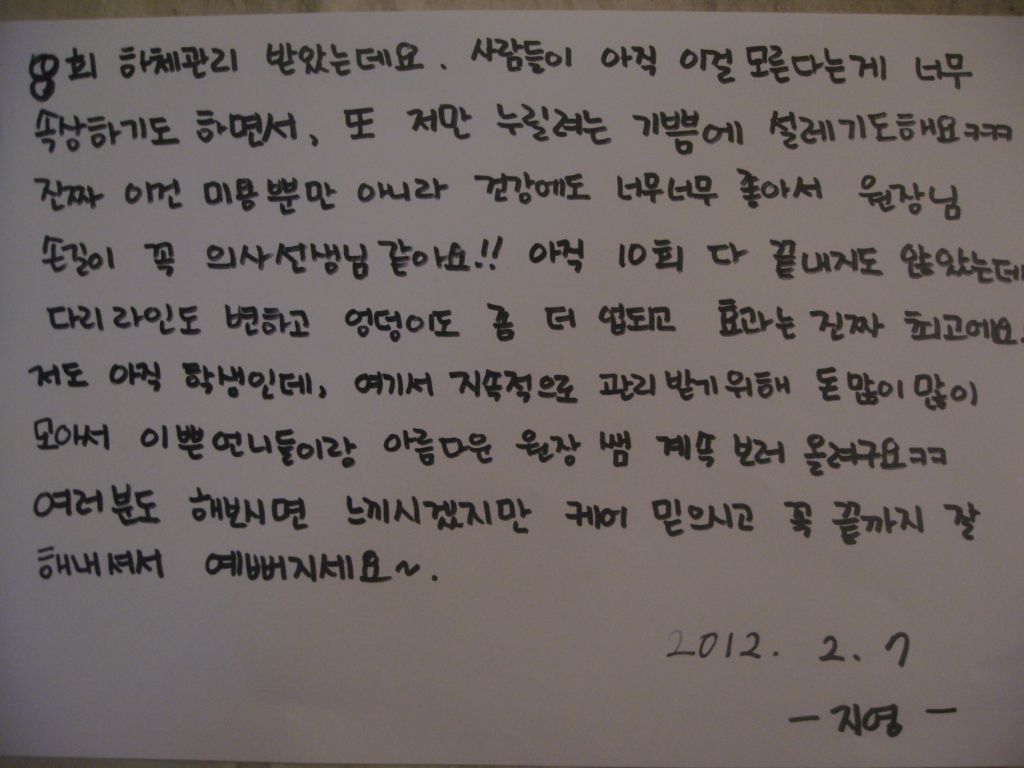 8회 하체관리 받았는데요. 사람들이 아직 이걸 모른다는게 너무
속상하기도 하면서, 또 저만 누릴려는 기쁨에 설레기도해요ㅋㅋ
진짜 이건 미용뿐만 아니라 건강에도 너무너무 좋아서 원장님
손길이 꼭 의사선생님같아요!! 아직 10회 다 끝내지도 않았는데
다리라인도 변하고 엉덩이도 좀 더 업되고 효과는 진짜 최고에요.
저도 아직 학생인데, 여기서 지속적으로 관리받기위해 돈많이많이
모아서 이쁜언니들이랑 아름다운 원장 쌤 계속 보러 올려구요ㅋㅋ
여러분도 해보시면 느끼시겠지만 케어 믿으시고 꼭 끝까지 잘
해내셔서 예뻐지세요~.
2012. 2. 7
- 지영 -